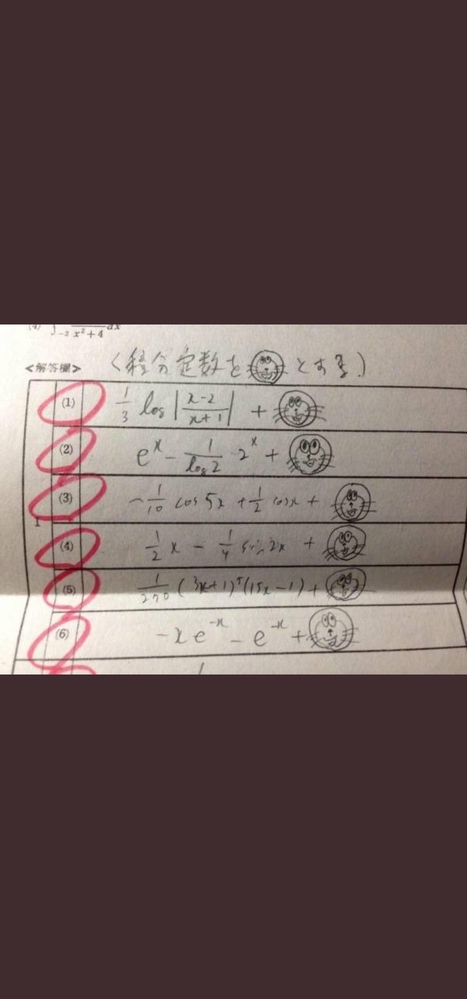 ∫₋₂ 1/(x²+4) dx
<解答欄> (積分定数を とする.)
1
(1) 1/3 log |(x-2)/(x+1)| +
(2) eˣ - 1/log2 · 2ˣ +
(3) -1/10 cos 5x + 1/2 cos x +
(4) 1/2 x - 1/4 sin 2x +
(5) 1/270 (3x+1)⁵(15x-1) +
(6) -xe⁻ˣ - e⁻ˣ +